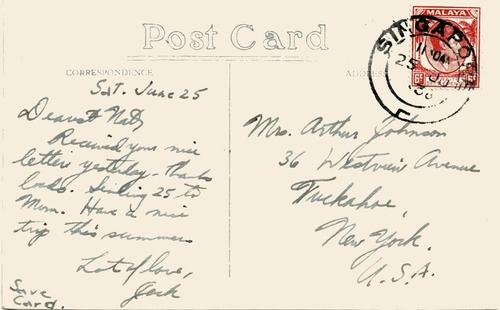 Post Card
CORRESPONDENCE
ADDRESS
MALAYA
6c
SINGAPORE
25
Sat. June 25
Dearest Nat,
Received your nice
letter yesterday. Thanks
loads. Sending 25 to
Mom. Have a nice
trip this summer.
Lot of love,
Jack
Save
Card.
Mrs. Arthur Johnson
36 Westview Avenue
Tuckahoe,
New York.
U.S.A.